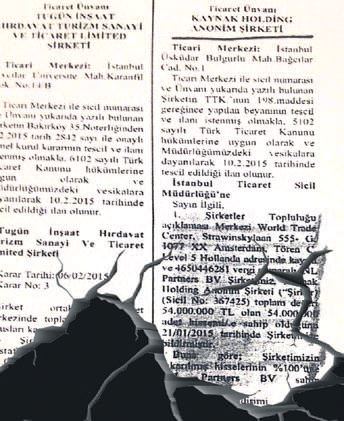 Ticaret Ünvanı
TUGÜN İNŞAAT
HIRDAVAT TURİZM SANAYİ
VE TİCARET LİMİTED
ŞİRKETİ
Ticari Merkezi: İstanbul
Üniversite Mah.Karanfil
No.14/B
Ticari Merkezi ile sicil numarası
ve Ünvanı yukarıda yazılı bulunan
şirketin Bakırköy 35.Noterliğinden
2015 tarih 2842 sayı ile onaylı
genel kurul kararının tescil ve ilanı
istenmiş olmakla, 6102 sayılı Türk
Ticaret Kanunu hükümlerine
uygun olarak ve
Müdürlüğümüzdeki vesikalara
dayanılarak 10.2.2015 tarihinde
tescil edildiği ilan olunur.
Tugün İnşaat Hırdavat
Turizm Sanayi Ve Ticaret
Limited Şirketi
Karar Tarihi: 06/02/2015
Karar No: 3
Şirket
Ticaret Ünvanı
KAYNAK HOLDİNG
ANONİM ŞİRKETİ
Ticari Merkezi: İstanbul
Üsküdar Bulgurlu Mah.Bağcılar
Cad. No.1
Ticari Merkezi ile sicil numarası
ve Ünvanı yukarıda yazılı bulunan
Şirketin TTK'nun 198.maddesi
gereğince yapılan beyanının tescil
ve ilanı istenmiş olmakla, 6102
sayılı Türk Ticaret Kanunu
hükümlerine uygun olarak ve
Müdürlüğümüzdeki vesikalara
dayanılarak 10.2.2015 tarihinde
tescil edildiği ilan olunur.
İstanbul Ticaret Sicil
Müdürlüğü'ne
Sayın İlgili,
1. Şirketler Topluluğu
açıklaması Merkezi World Trade
Center, Strawinskylaan 555- G,
1077 XX Amsterdam, Tören C
Level 5 Hollanda adresinde
ve 4650446281 vergi NL
Partners BV Şirketimiz,
Holding Anonim Şirketi ("Şirket")
(Sicil No: 367425) toplam değeri
54.000.000 TL olan 54.000.000
adet hissesine sahip olduğunu
21/01/2015 tarihinde Şirketimize
bildirmiştir.
Buna göre; Şirketimizin
hisselerinin %100'üne
Partners BV